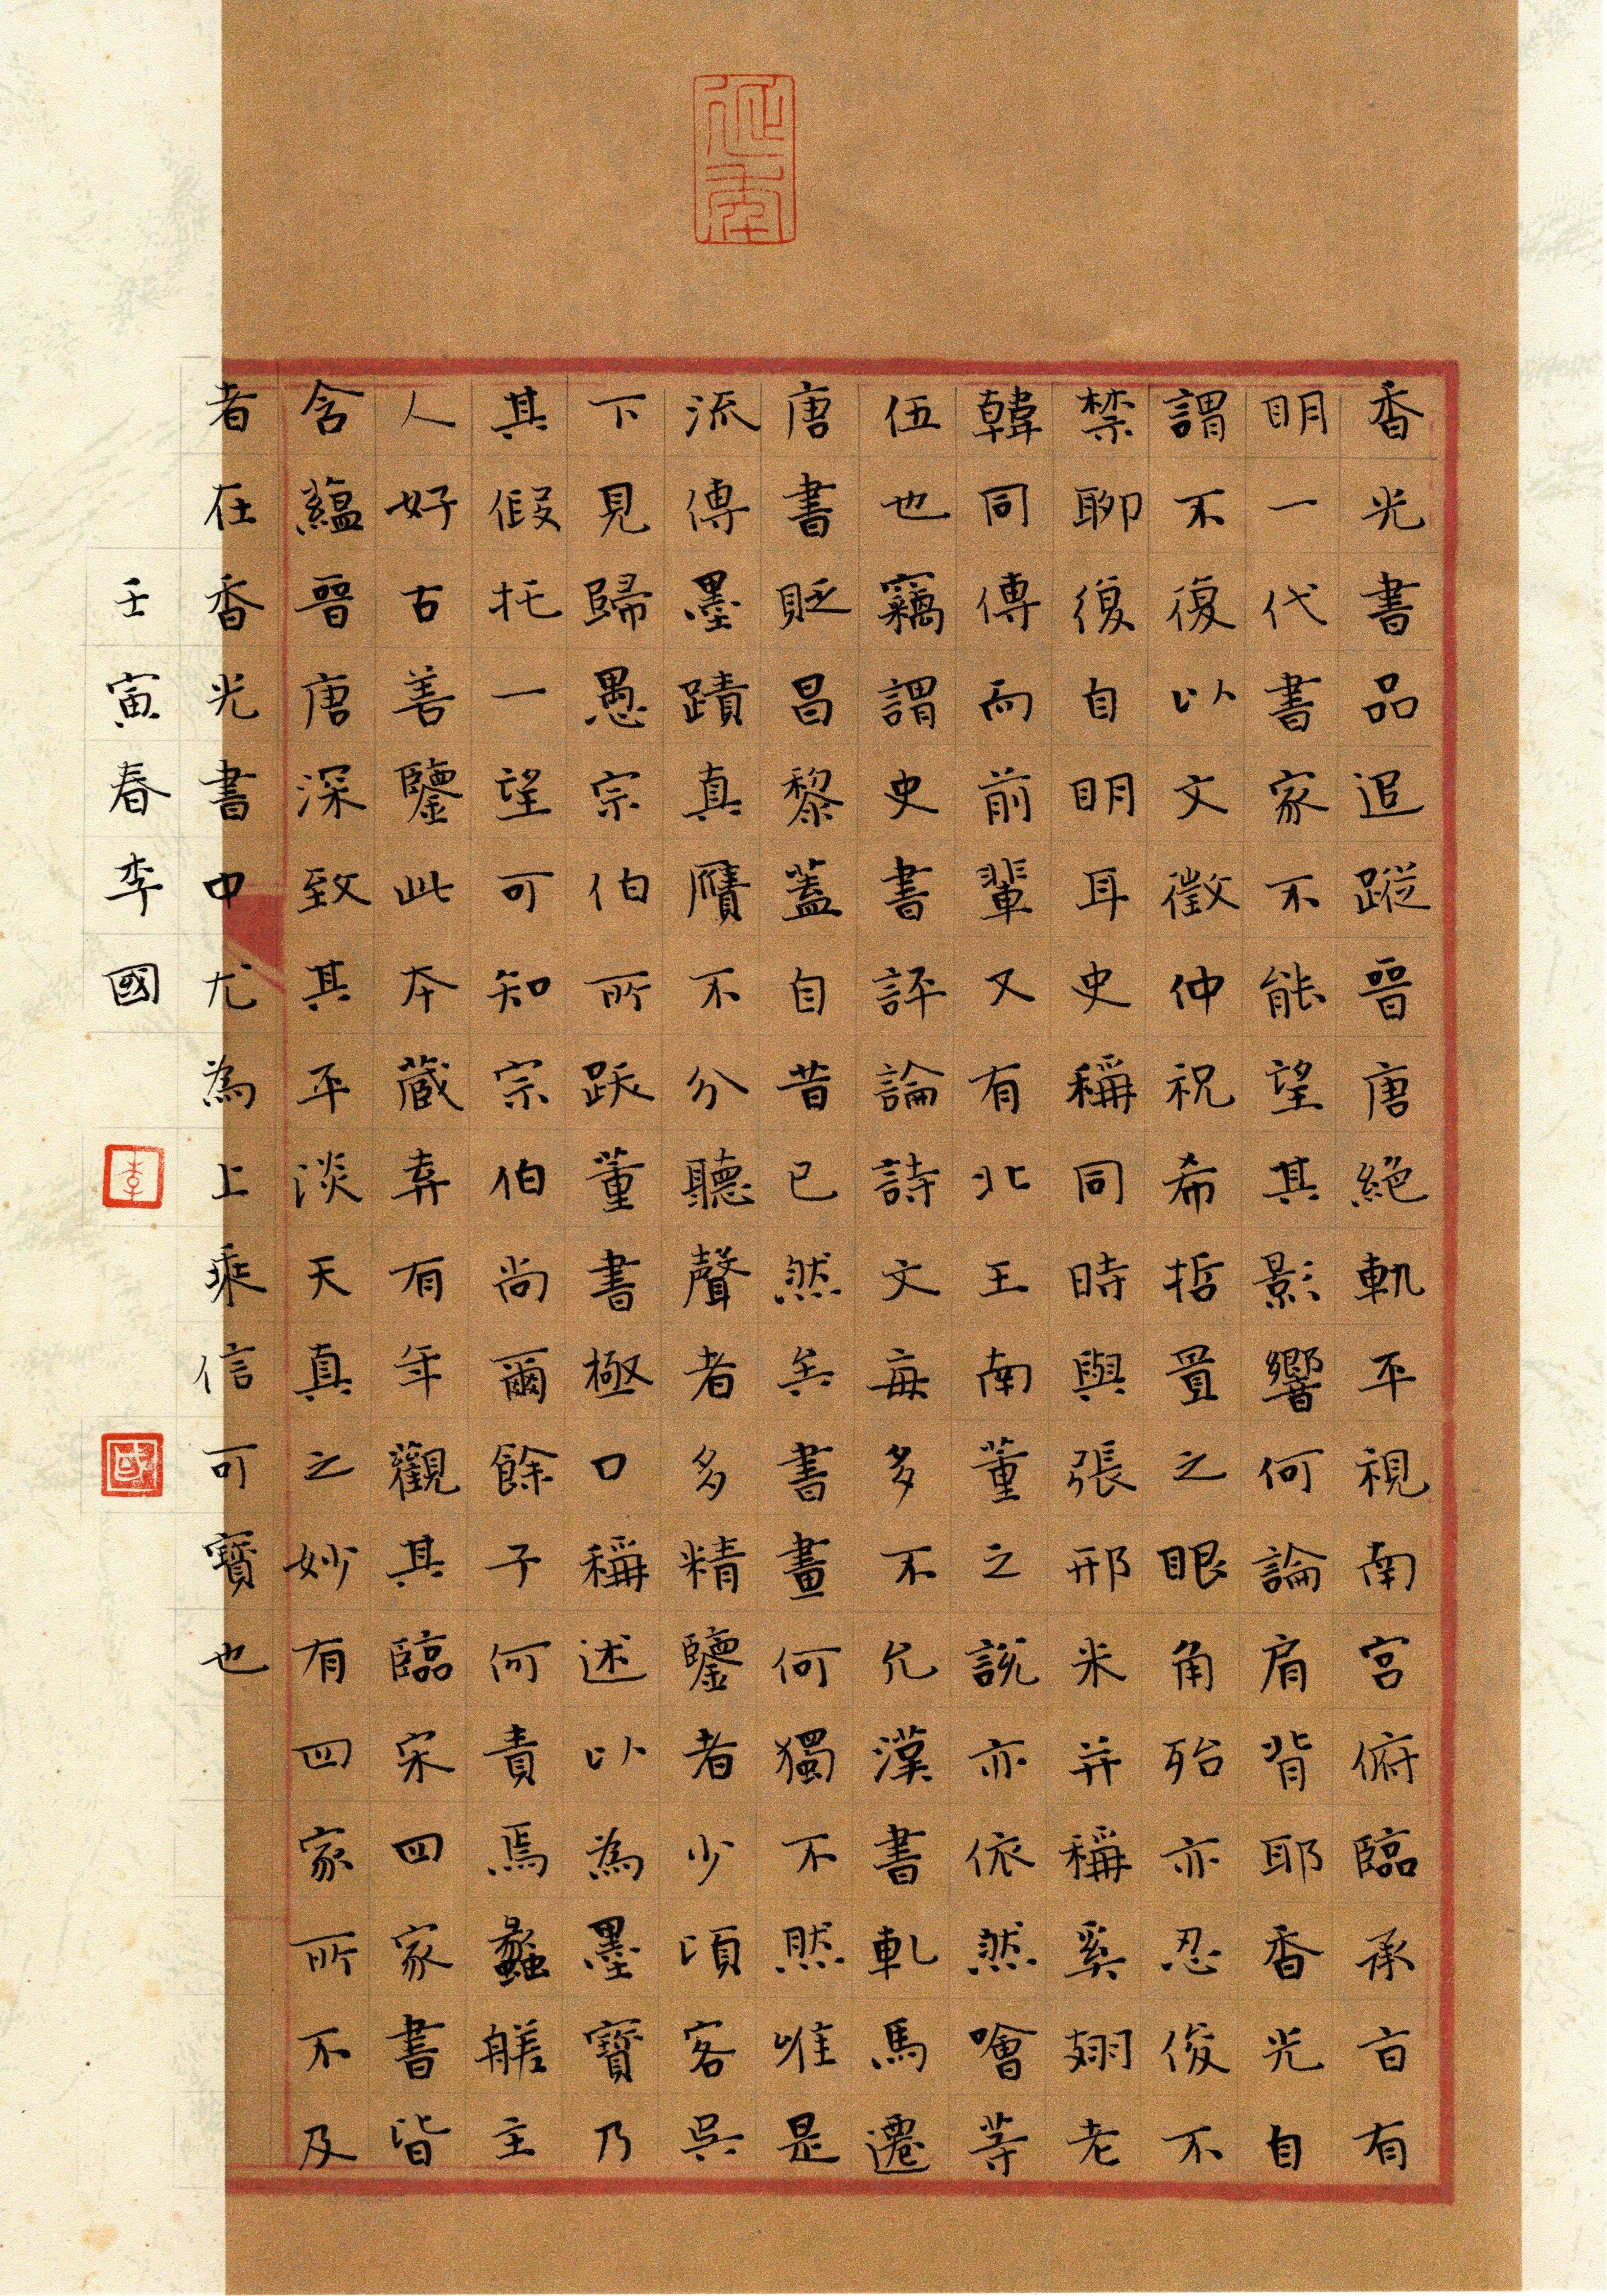 香光書品追蹤晉唐絕軌平視南宮俯臨承旨有
明一代書家不能望其影響何論肩背耶香光自
謂不復以文徵仲祝希哲置之眼角殆亦忍俊不
禁聊復自明耳史稱同時與張邢米并稱奚翅老
韓同傳而前輩又有北王南董之說亦依然噲等
伍也竊謂史書評論詩文每多不允漢書軋馬遷
唐書貶昌黎蓋自昔已然矣書畫何獨不然唯是
流傳墨蹟真贗不分聽聲者多精鑒者少頃客吳
下見歸愚宗伯所跋董書極口稱述以為墨寶乃
其假托一望可知宗伯尚爾餘子何責焉蠡艖主
人好古善鑒此本藏弆有年觀其臨宋四家書皆
含蘊晉唐深致其平淡天真之妙有四家所不及
者在香光書中尤為上乘信可寶也
壬寅春李國
李
國